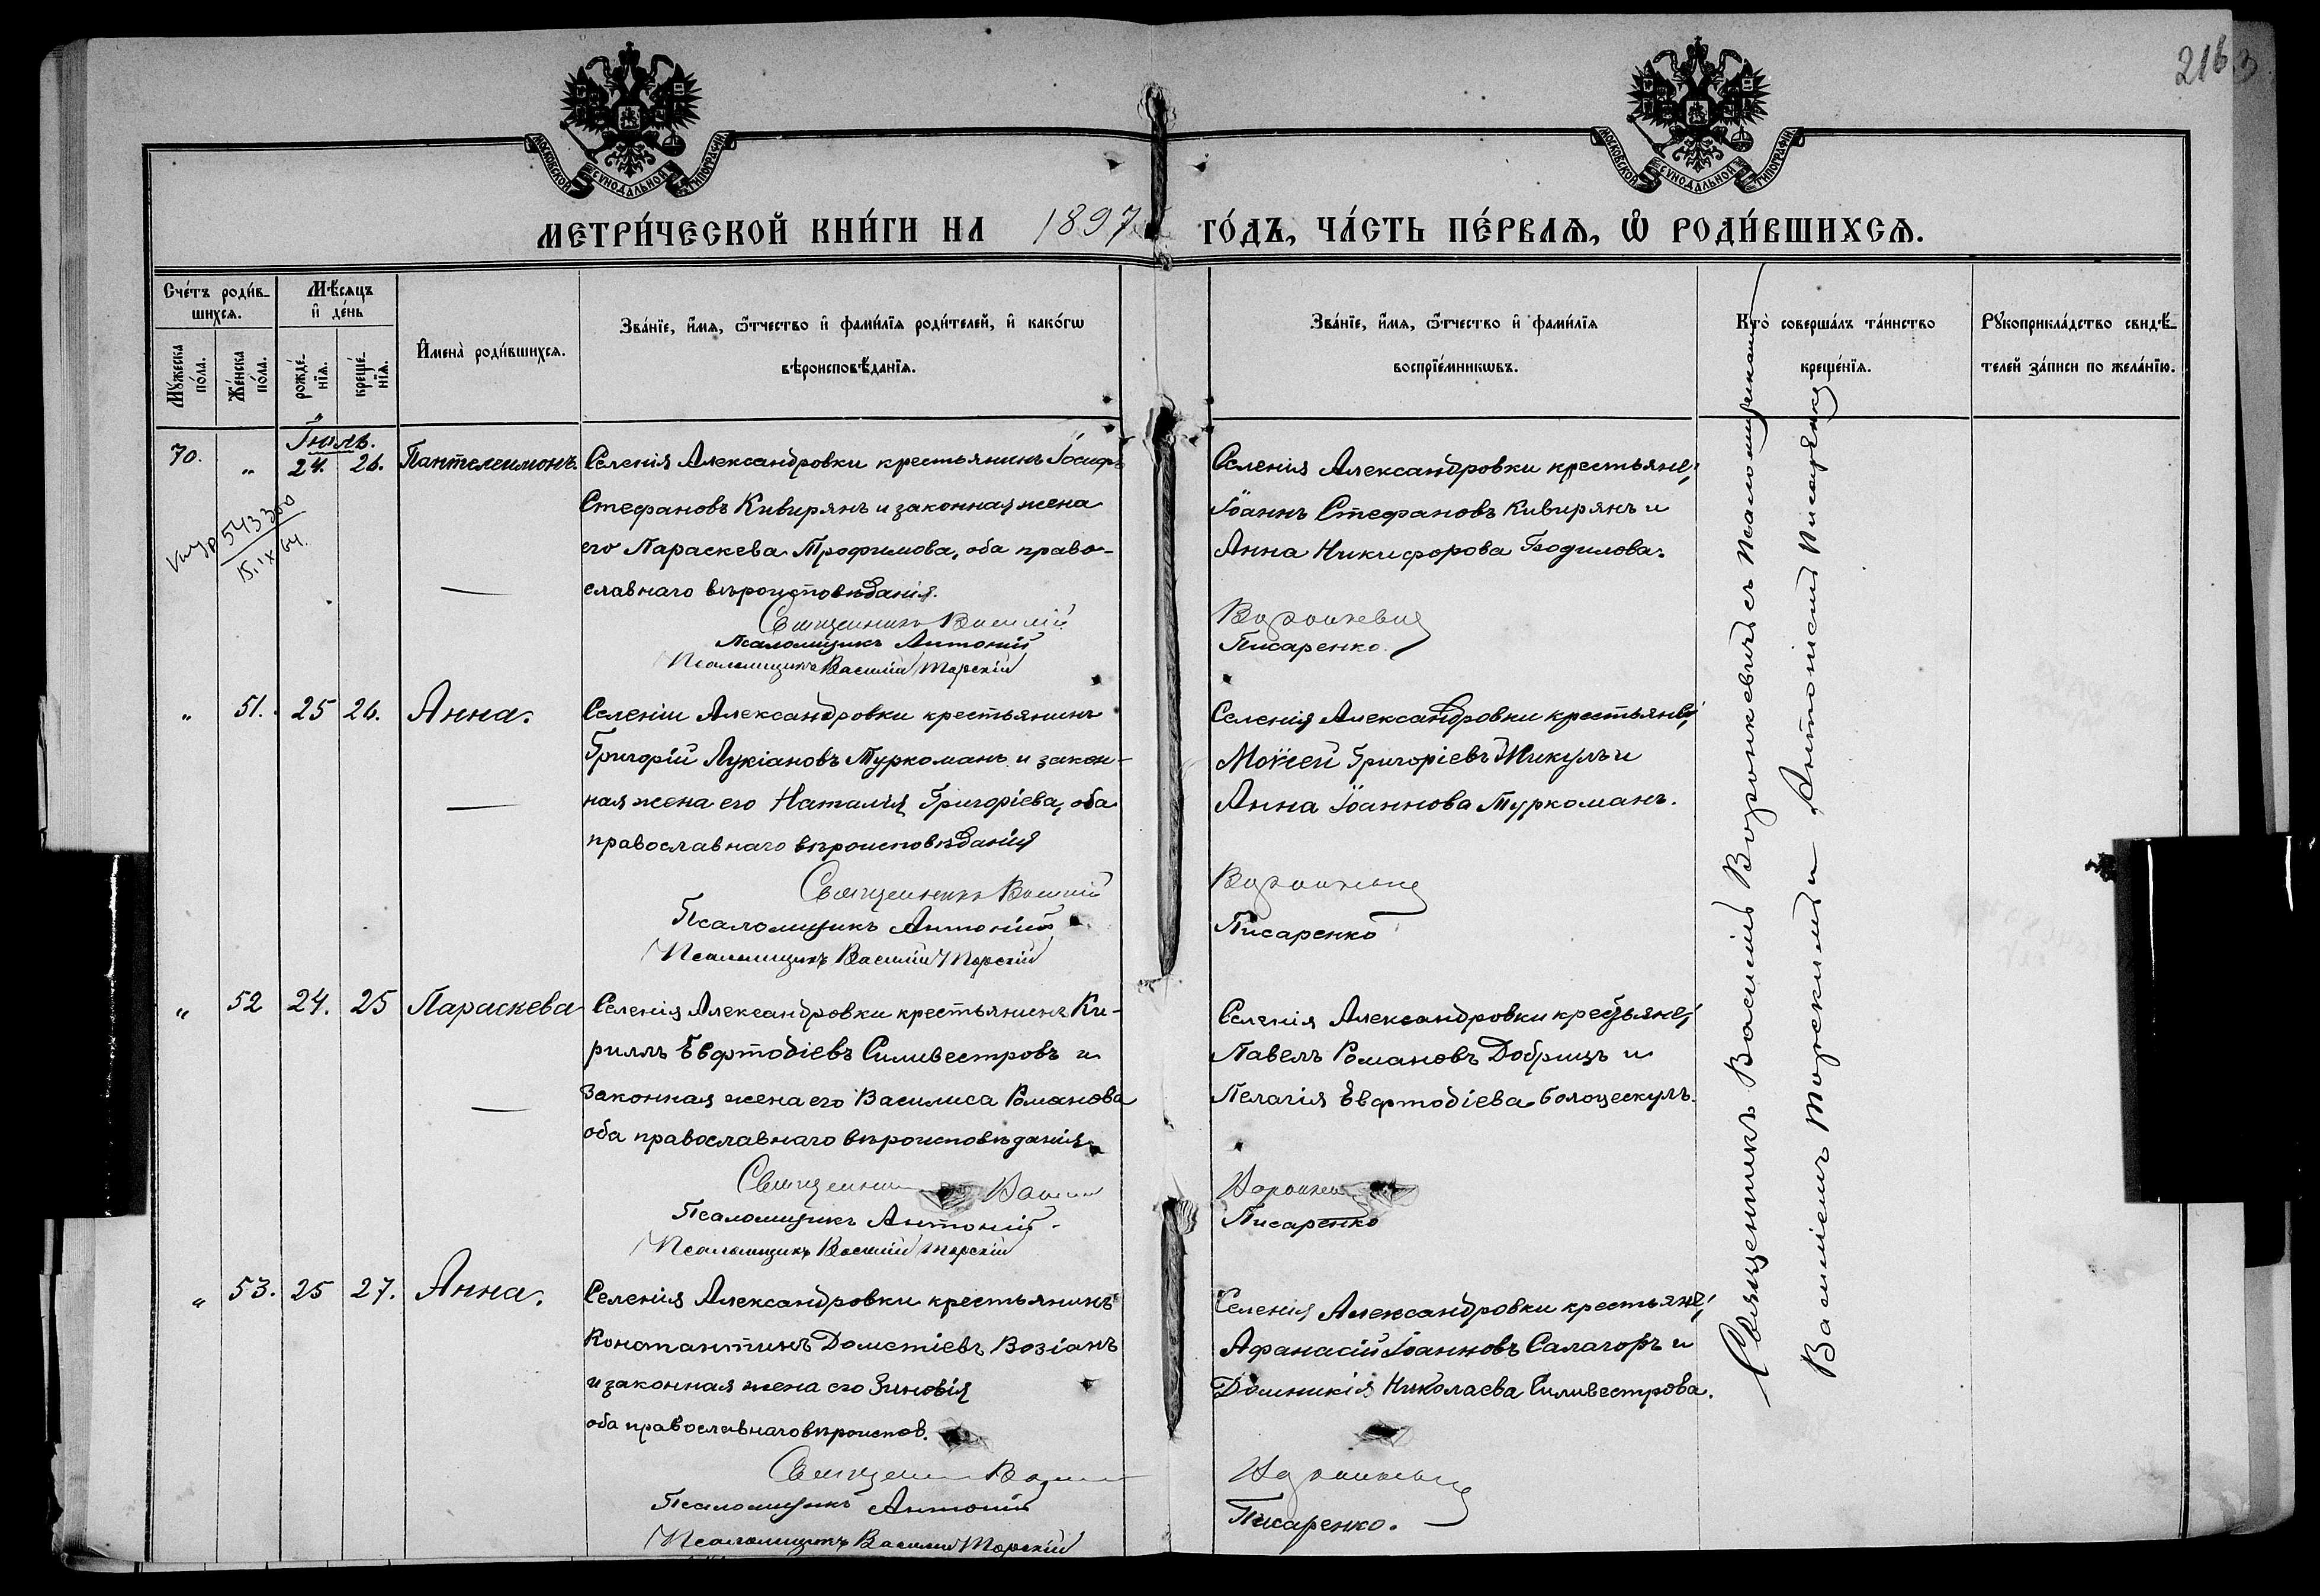 216
3
МОСКОВСКОЙ СѴНОДАЛЬНОЙ ТИПОГРАФІИ
МОСКОВСКОЙ СѴНОДАЛЬНОЙ ТИПОГРАФІИ
МЕТРИ́ЧЕСКОЙ КНИ́ГИ НА 1897 ГО́ДЪ, ЧА́СТЬ ПЕ́РВАѦ, Ѡ РОДИ́ВШИХСѦ.
Сче́тъ роди́в-
шихсѧ.
Мꙋ́жеска
по́ла.
Же́нска
по́ла.
Мѣ́сѧцъ
и҆ де́нь
рожде́-
нїѧ.
креще́-
нїѧ.
И҆мена̀ роди́вшихсѧ.
Зва́нїе, и҆́мѧ, ѻ҆́тчество и҆ фами́лїѧ роди́телей, и҆ како́гѡ
вѣроисповѣ́данїѧ.
Зва́нїе, и҆́мѧ, ѻ҆́тчество и҆ фами́лїѧ
воспрїе́мникѡвъ.
Кто̀ соверша́лъ та́инство
креще́нїѧ.
Рꙋкоприкла́дство свидѣ́-
телей за́писи по жела́нїю.
Іюль.
70. " 24. 26. Пантелеимонъ
Селенія Александровки крестьянинъ Іосифъ
Стефановъ Кивирянъ и законная жена
его Параскева Трофимова, оба право-
славнаго вѣроисповѣданія.
Священникъ Василій
Псаломщикъ Антоній
Псаломщикъ Василій Торскій
Селенія Александровки крестьяне,
Іоаннъ Стефановъ Кивирянъ и
Анна Никифорова Бодилова.
Воронкевич
Писаренко.
543300
15.IX 64.
" 51. 25 26. Анна.
Селеніи Александровки крестьянинъ
Григорій Лукіановъ Туркоманъ и закон-
ная жена его Наталія Григоріева, оба
православнаго вѣроисповѣданія
Священникъ Василій
Псаломщикъ Антоній
Псаломщикъ Василій Торскій
Селенія Александровки крестьяне,
Моѵсей Григоріевъ Микулъ и
Анна Іоаннова Туркоманъ.
Воронкевич
Писаренко
" 52 24. 25 Параскева
Селенія Александровки крестьянинъ Ки-
риллъ Евфтодіевъ Силивестровъ и
законная жена его Василиса Романова
оба православнаго вѣроисповѣданія
Священникъ Василій
Псаломщикъ Антоній
Псаломщикъ Василій Торскій
Селенія Александровки крестьяне,
Павелъ Романовъ Добрицъ и
Пелагія Евфтодіева Болоцескулъ.
Воронкевич
Писаренко
" 53. 25 27. Анна.
Селенія Александровки крестьянинъ
Константинъ Дометіевъ Возіанъ
и законная жена его Зиновія
оба православнаго вѣроиспов.
Священникъ Василій
Псаломщикъ Антоній
Псаломщикъ Василій Торскій
Селенія Александровки крестьяне,
Афанасій Іоанновъ Салагоръ и
Домникія Николаева Силивестрова.
Воронкевич
Писаренко.
Священникъ Василій Воронкевичъ съ псаломщиками
Василіемъ Торскимъ и Антоніемъ Писаренко